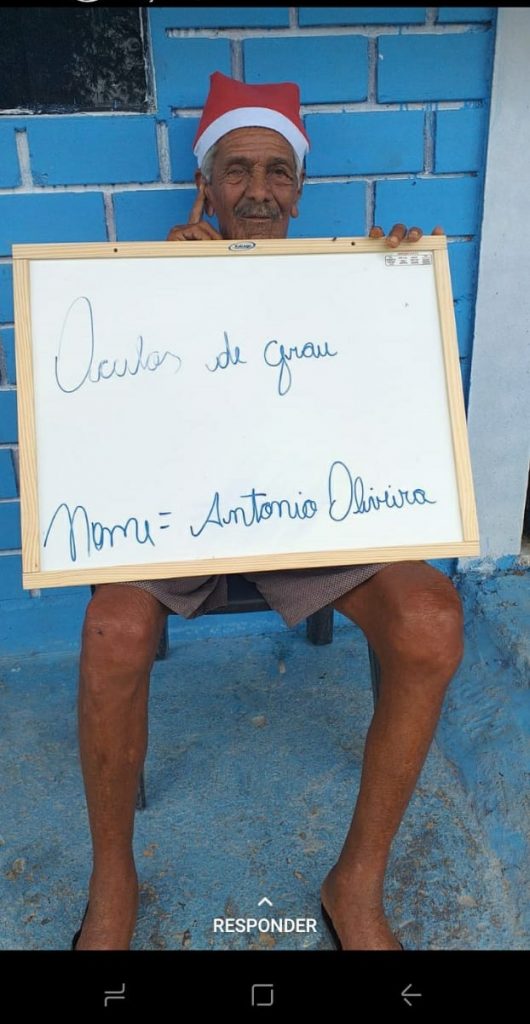 Óculos de grau
Nome= Antonio Oliveira
RESPONDER